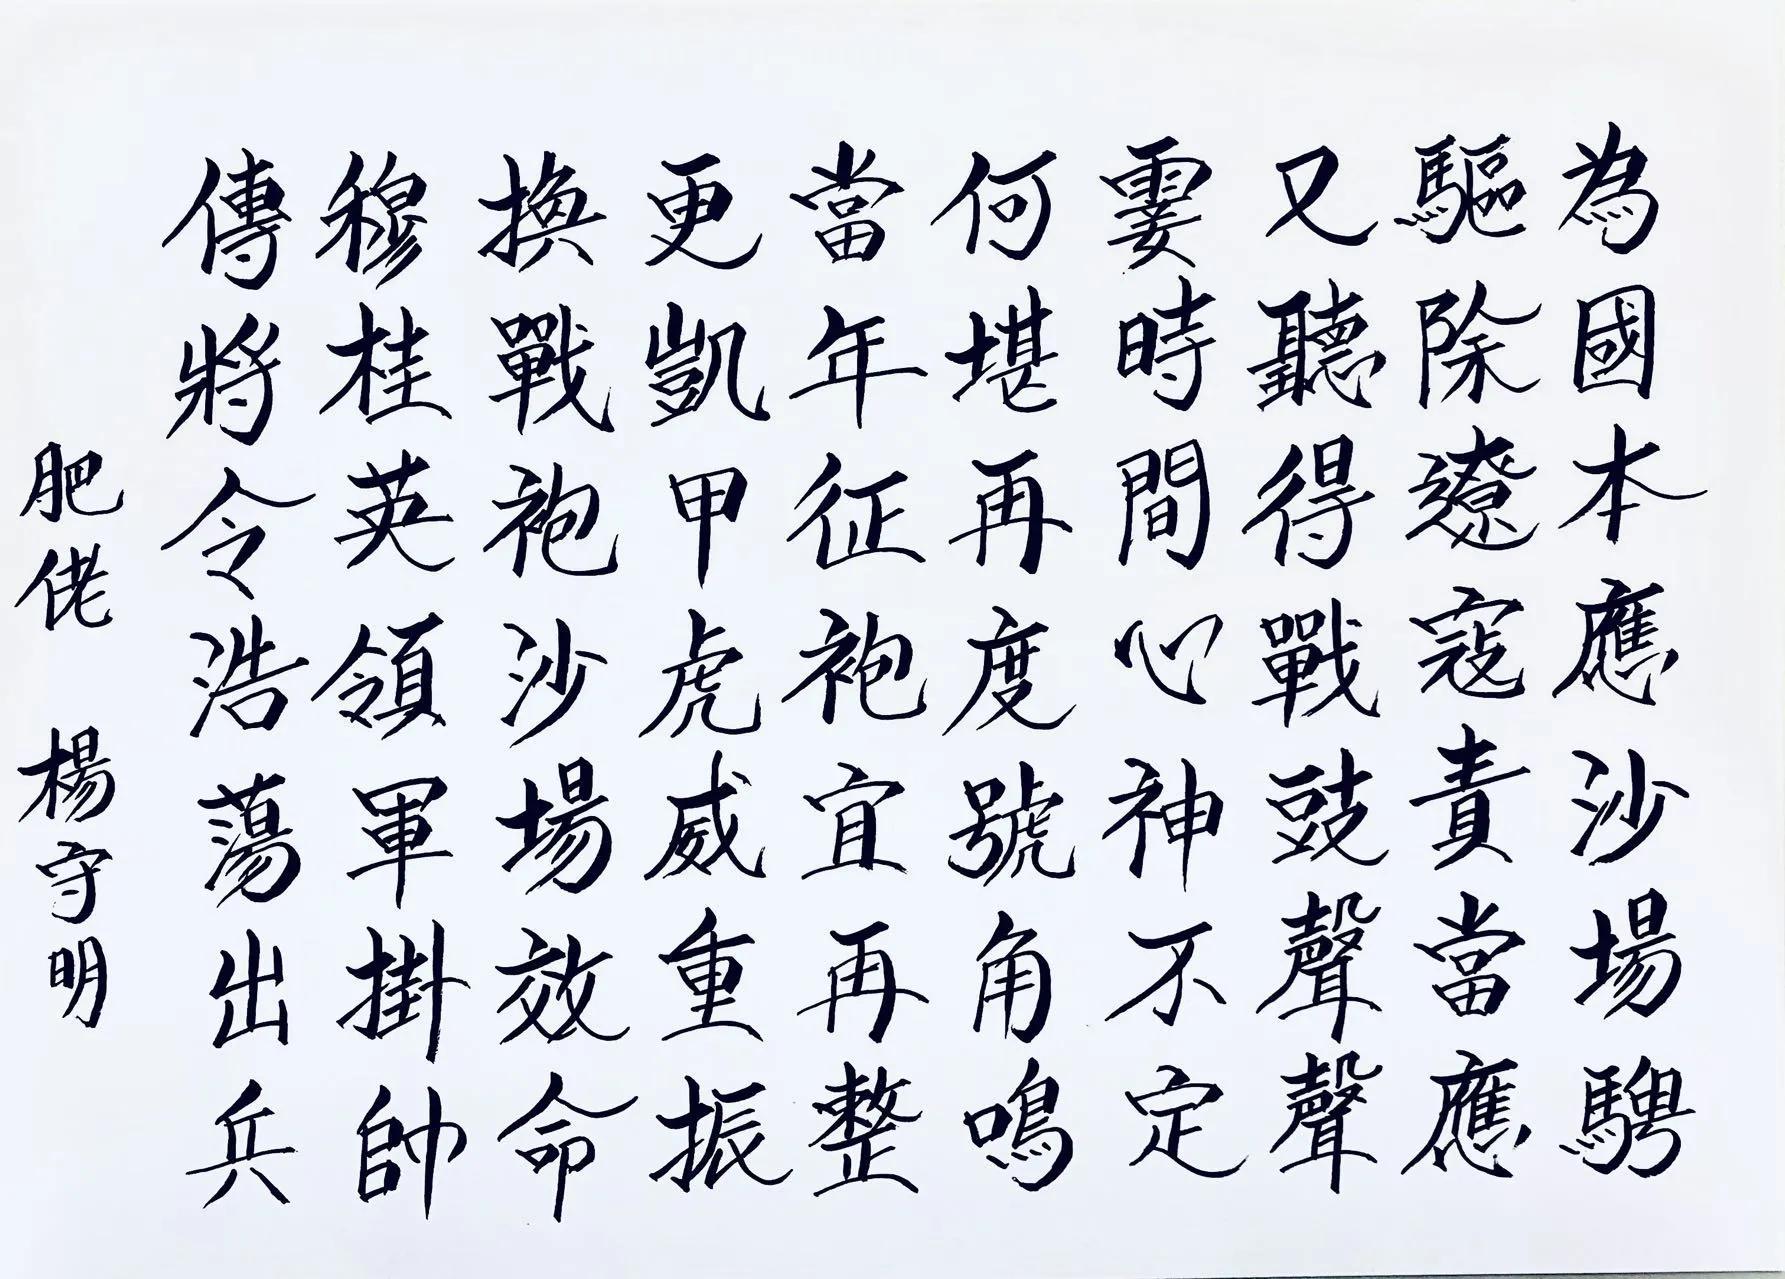 為國本應沙場騁
驅除遼寇責當應
又聽得戰鼓聲聲
霎時間心神不定
何堪再度號角鳴
當年征袍宜再整
更凱甲虎威重振
換戰袍沙場效命
穆桂英領軍掛帥
傳將令浩蕩出兵
肥佬 楊守明